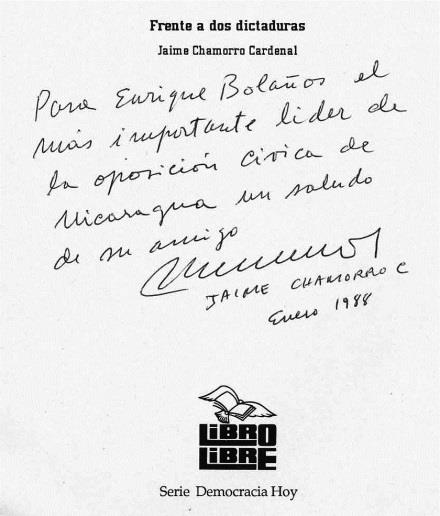 Frente a dos dictaduras
Jaime Chamorro Cardenal
Para Enrique Bolaños el
más importante lider de
la oposición cívica de
Nicaragua un saludo
de su amigo
JAIME CHAMORRO C
Enero 1988
LIBRO
LIBRE
Serie Democracia Hoy